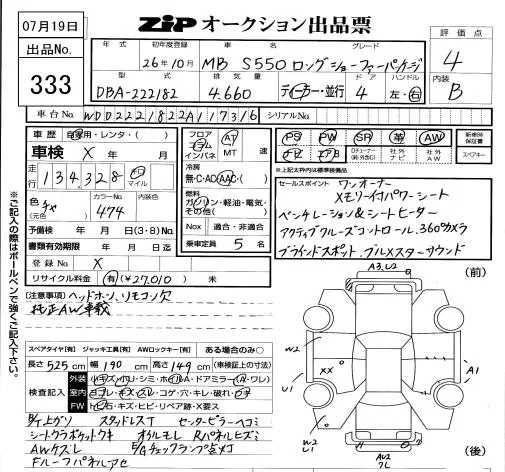 07月19日
出品No.
333
ZIP オークション出品票
評価点
4
内装
B
年式 初年度登録 車名 グレード
26年10月 MB S550 ロングショーファーパッケージ
型式 排気量 ドア ハンドル
DBA-222182 4.660 ディーラー・並行 4 左・右
車台No. WDD2221822A117316 シリアルNo.
車歴 自家用・レンタ・( )
車検 X 年 月
走行 134,328 キロ マイル
色 チャ (元色) カラーNo. 474 内装色
予備検 年 月 日(3·8) No.
書類有効期限 年 月 日迄
登録No. X
リサイクル料金 有(¥27,010) 未
フロア コラム インパネ AT MT 速
冷房 無・C・AC・AAC・( )
燃料 ガソリン・軽油・電気・その他( )
Nox 適合・非適合
乗車定員 5 名
PS PW SR 革 AW
新車時保証書
Dチューナー (純・外含G) 社外ナビ 社外AW スペアキー
*上記太枠内は標準装備品
セールスポイント ワンオーナー
メモリー付パワーシート
ベンチレーション&シートヒーター
アクティブクルーズコントロール、360°カメラ
ブラインドスポット、ブルメスターサウンド
※ご記入の際はボールペンで強くご記入下さい。
(注意事項) ヘッドホン、リモコン欠
純正AW車載
スペアタイヤ[有] ジャッキ工具[有] AWロックキー[有] ある場合のみ○
長さ 525 cm 幅 190 cm 高さ 149 cm (車検証の寸法)
検査記入
外装 小キズ・ホリ・シミ・ホイルA・ドアミラー(A・ワレ)
室内 ヨゴレ・キズ・スレ・コゲ・穴・ケズレ・キレ・破れ・
FW トビ石・キズ・ヒビ・リペア跡・X要ス
シートウラポケットウキ オケルモレ Rパネルヒズミ
AWケズレ E/Gチェックランプ点メコ
Fルーフパネルアセ
(前)
A3、U2
W2
U1
XX
A1
W2
U1
AU2
(後)